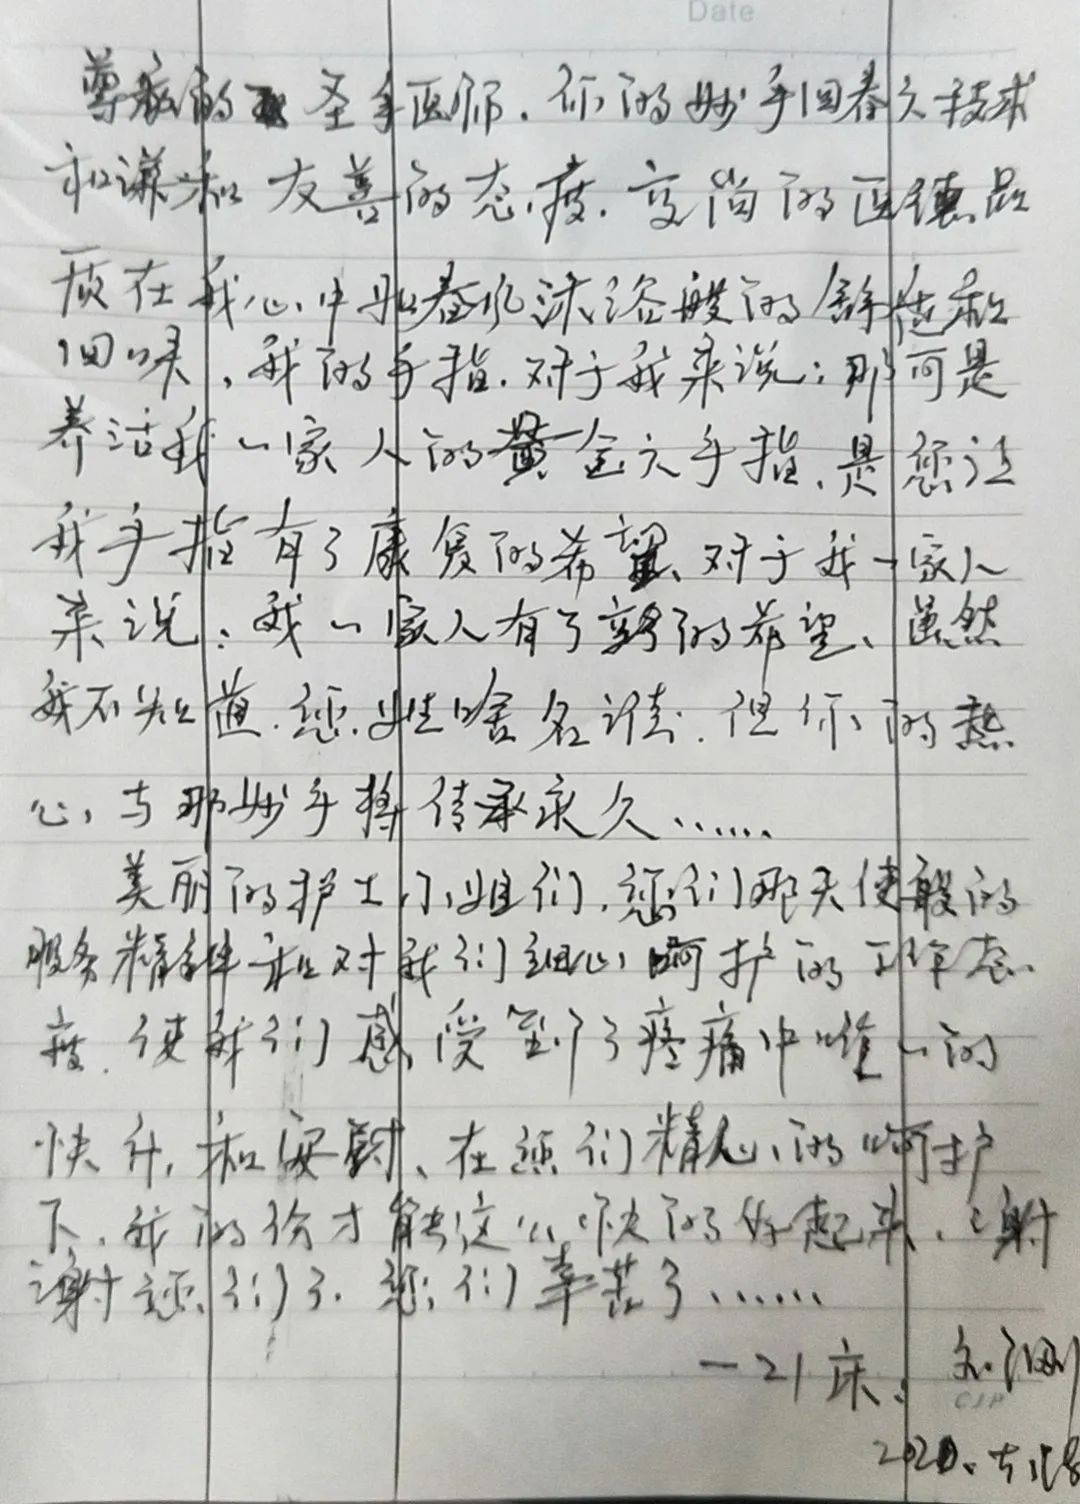 Date
尊敬的圣手医师.你的妙手回春之技术
和谦和友善的态度.高尚的医德品
质在我心中如春风沐浴般的余悸和
回味、我的手指.对于我来说:那可是
养活我一家人的黄金之手指、是您让
我手指有了康复的希望、对于我一家人
来说:我一家人有了的希望、虽然
我不知道.您.姓啥名谁.但你的热
心与那妙手将传承永久......
美丽的护士小姐们.您们那天使般的
服务精神和对我们细心呵护的工作态
度.使我们感受到了疼痛中唯一的
快乐和安慰、在您们精心的呵护
下.我的伤才能这么快的好起来、谢
谢您们了.您们辛苦了......
一21床:
2020.